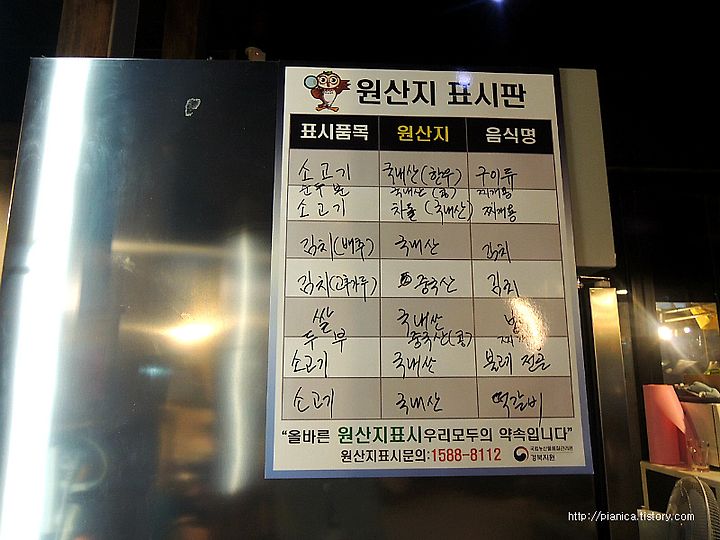 원산지 표시판
표시품목 원산지 음식명
소고기 국내산(한우) 구이류
순두부 국내산(콩) 찌개용
소고기 차돌(국내산) 찌개용
김치(배추) 국내산 김치
김치(고추가루) 중국산 김치
쌀 국내산
두부 중국산(콩)
소고기 국내산 불고기 전골
소고기 국내산 떡갈비
"올바른 원산지표시 우리모두의 약속입니다"
원산지표시문의:1588-8112
국립농산물품질관리원
경북지원
http://pianica.tistory.com